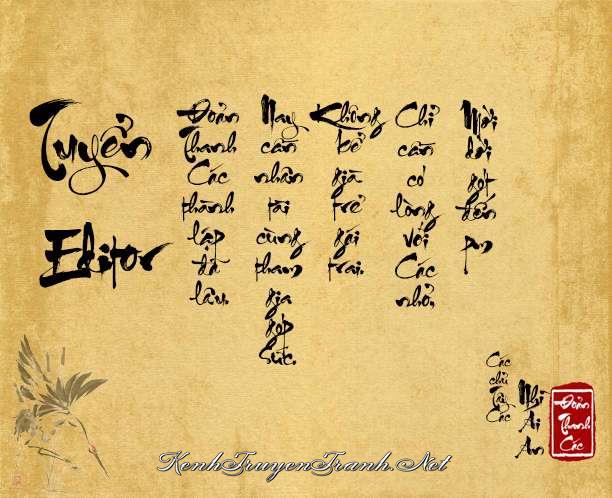 Tuyển
Editor
Đoản Thanh Các thành lập đã lâu.
Nay cần nhân tài cùng tham gia góp sức.
Không kể già trẻ gái trai.
Chỉ cần có lòng với Các nhỏ,
Mời dời gót đến pm
Các chủ Tây Các
Nhĩ Ái An
Đoản Thanh Các
KenhTruyenTranh.Net